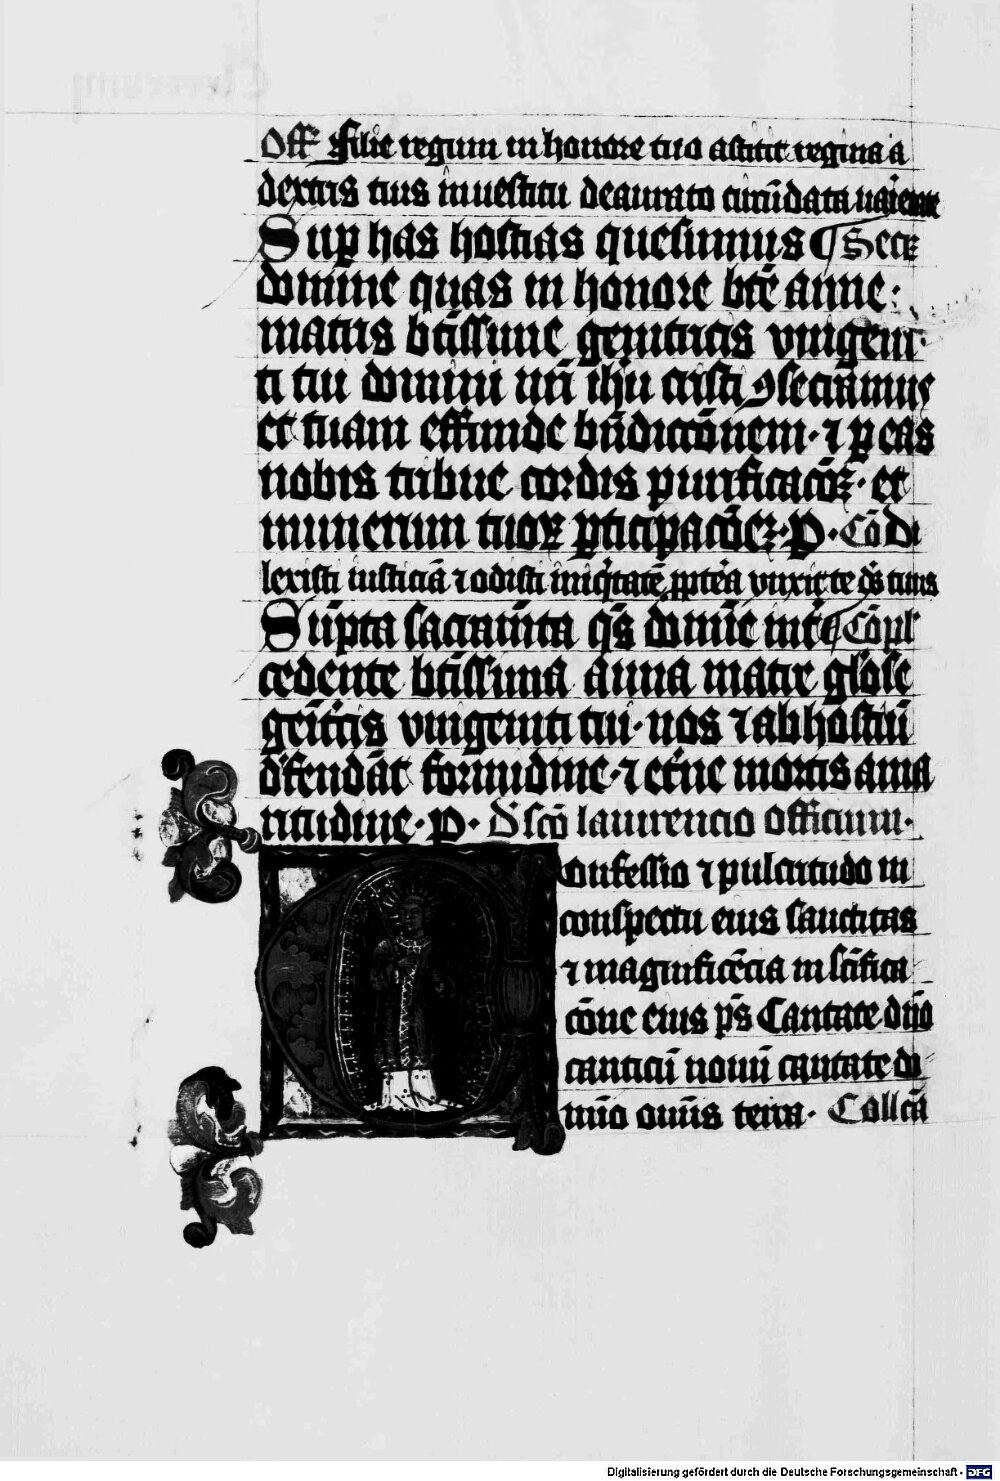 Off Filie regum in honore tuo astitit regina a
dextris tuis in uestitu deaurato circu̅data uariet
Sup̱ has hostias quesumus ¶ Secr̅
domine quas in honore bt̅e anne·
matris bt̅issime genitricis vnigeni·
ti tui domini nr̅i ih̅u cristi ꝯsecramus
et tuam effunde bn̅dicco̅nem· ⁊ ꝑ eas
nobis tribue cordis purificaco̅ꝫ· et
munerum tuoꝝ ꝑticipaco̅eꝫ· P· Co̅ Di
lexisti iusticia̅ ⁊ odisti iniqͥtate̅ ꝓpte̅a vnxit te ds̅ tuus
Su̅pta sacram̅ta qs̅ domi̅e int̅ ¶ Co̅pl
cedente bt̅issima anna matre glo̅se
geni̅tcis vnigeniti tui· nos ⁊ ab hostiu̅
d̕fenda̅t formidine· ⁊ et̕ne mortis ama
ritudine· P· D̕ sco̅ laurencio officium·
Confessio ⁊ pulcritudo in
conspectu eius sanctitas
⁊ magnifice̅cia in sc̅ifica
co̅ne eius ps̅ Cantate dn̅o
canticu̅ nouu̅ cantate do
mi̅o om̅is terra· Collc̅a
Digitalisierung gefördert durch die Deutsche Forschungsgemeinschaft - DFG